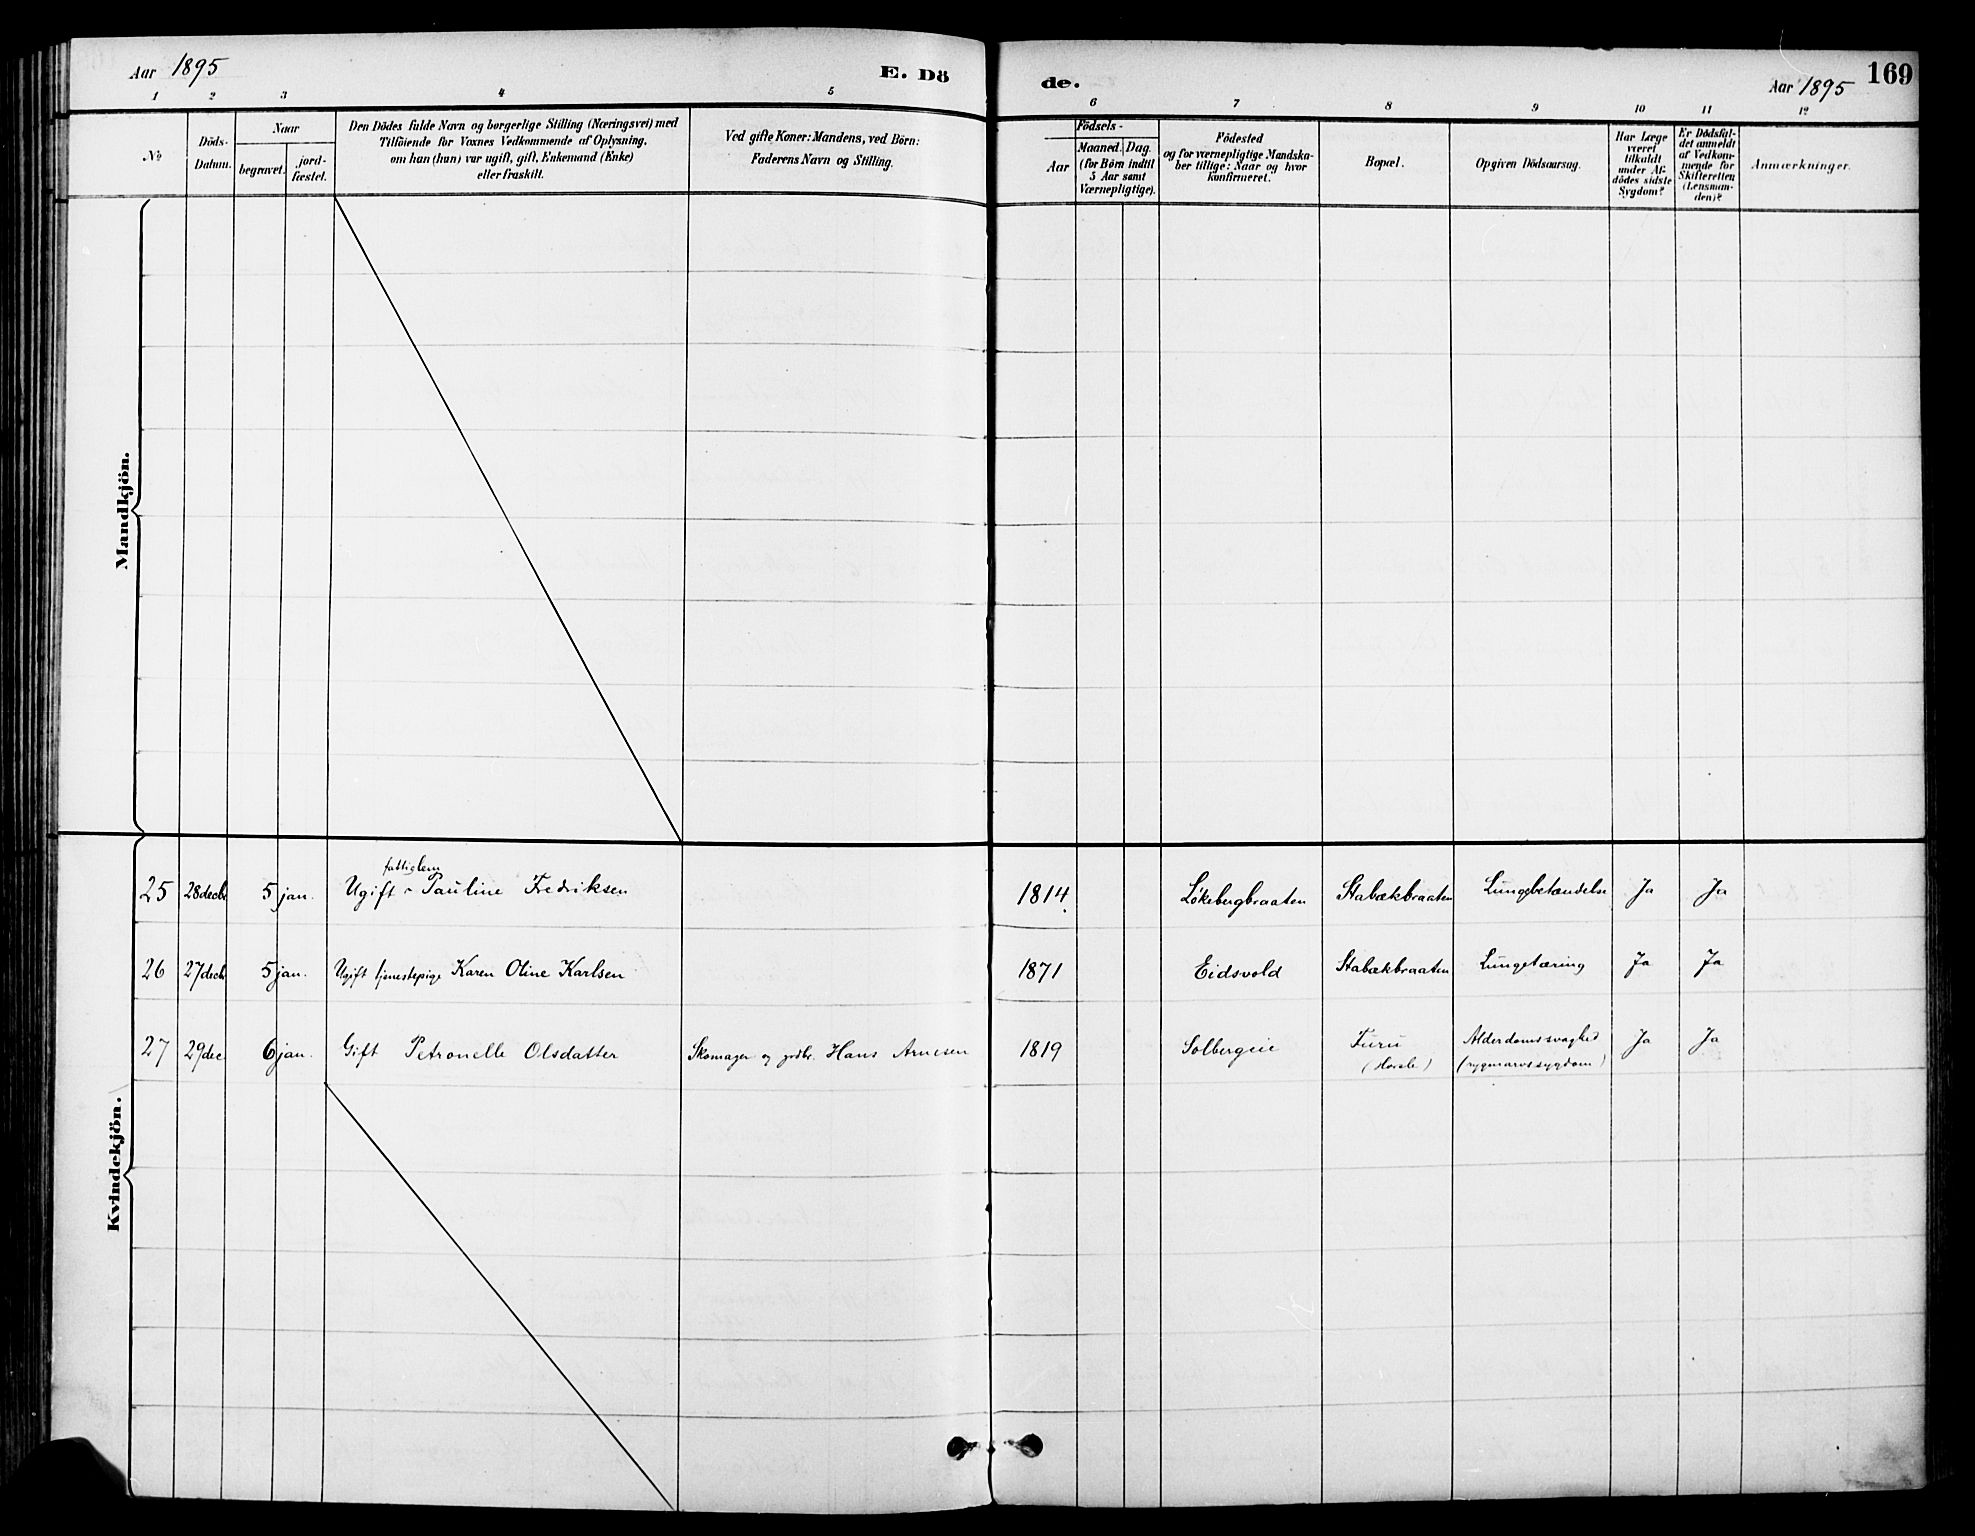 Aar 1895
E. Dö
de.
Aar 1895
169
1 2 3 4 5 6 7 8 9 10 11 12
No
Döds-
Datum.
Naar
begravet.
jord-
fæstet.
Den Dödes fulde Navn og borgerlige Stilling (Næringsvei) med
Tilföiende for Voxnes Vedkommende af Oplysning,
om han (hun) var ugift, gift, Enkemand (Enke)
eller fraskilt.
Ved gifte Koner: Mandens, ved Börn:
Faderens Navn og Stilling.
Födsels-
Aar
Maaned. Dag.
(for Börn indtil
5 Aar samt
Værnepligtige).
Födested
og for værnepligtige Mandska-
ber tillige: Naar og hvor
konfirmeret.
Bopæl.
Opgiven Dödsaarsag.
Har Læge
været
tilkaldt
under Af-
dödes sidste
Sygdom?
Er Dödsfal-
det anmeldt
af Vedkom-
mende for
Skifteretten
(Lensman-
den)?
Anmærkninger.
Mandkjön.
Kvindekjön.
fattiglem
25 28decbr 5 jan. Ugift Pauline Fredriksen 1814. Løkebergbraaten Stabækbraaten Lungebetændelse Ja Ja
26 27decb 5 jan. Ugift tjenestepige Karen Oline Karlsen 1871 Eidsvold Stabækbraaten Lungetæring Ja Ja
27 29dec 6 jan. Gift Petronelle Olsdatter Skomager og Hans Arnesen 1819 Solbergeie Furu Alderdomssvaghed Ja Ja
(rygmarvssygdom)